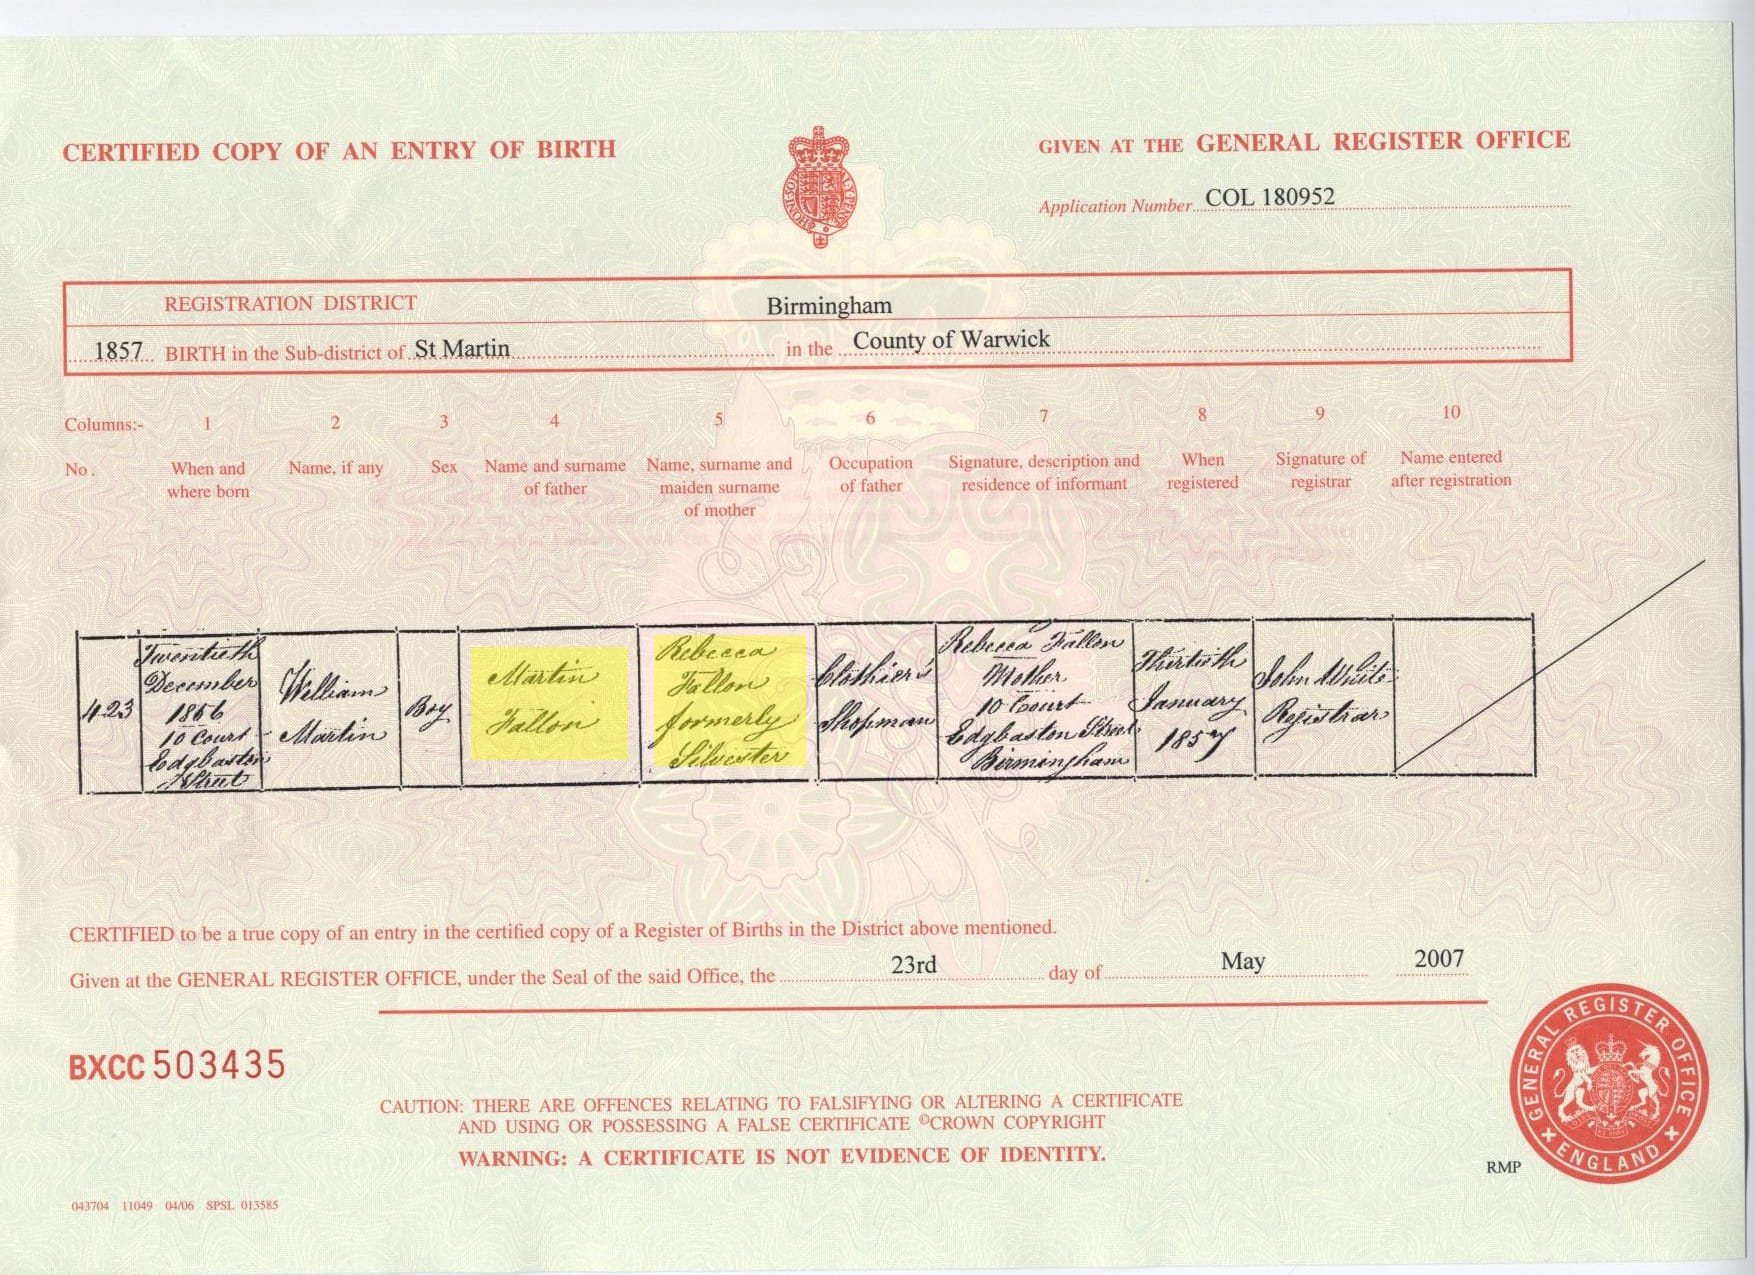 CERTIFIED COPY OF AN ENTRY OF BIRTH
GIVEN AT THE GENERAL REGISTER OFFICE
Application Number COL 180952
REGISTRATION DISTRICT Birmingham
1857 BIRTH in the Sub-district of St Martin in the County of Warwick
Columns:- 1 2 3 4 5 6 7 8 9 10
No. When and where born
Name, if any
Sex
Name and surname of father
Name, surname and maiden surname of mother
Occupation of father
Signature, description and residence of informant
When registered
Signature of registrar
Name entered after registration
423
Twentieth
December
1856
10 Court
Edgbaston
Street
William
Martin
Boy
Martin
Fallon
Rebecca
Fallon
formerly
Silvester
Clothier's
Shopman
Rebecca Fallon
Mother
10 Court
Edgbaston Street
Birmingham
Thirtieth
January
1857
John White
Registrar
CERTIFIED to be a true copy of an entry in the certified copy of a Register of Births in the District above mentioned.
Given at the GENERAL REGISTER OFFICE, under the Seal of the said Office, the 23rd day of May 2007
BXCC 503435
CAUTION: THERE ARE OFFENCES RELATING TO FALSIFYING OR ALTERING A CERTIFICATE
AND USING OR POSSESSING A FALSE CERTIFICATE ©CROWN COPYRIGHT
WARNING: A CERTIFICATE IS NOT EVIDENCE OF IDENTITY.
GENERAL REGISTER OFFICE
ENGLAND
RMP
043704 11049 04/06 SPSL 013585